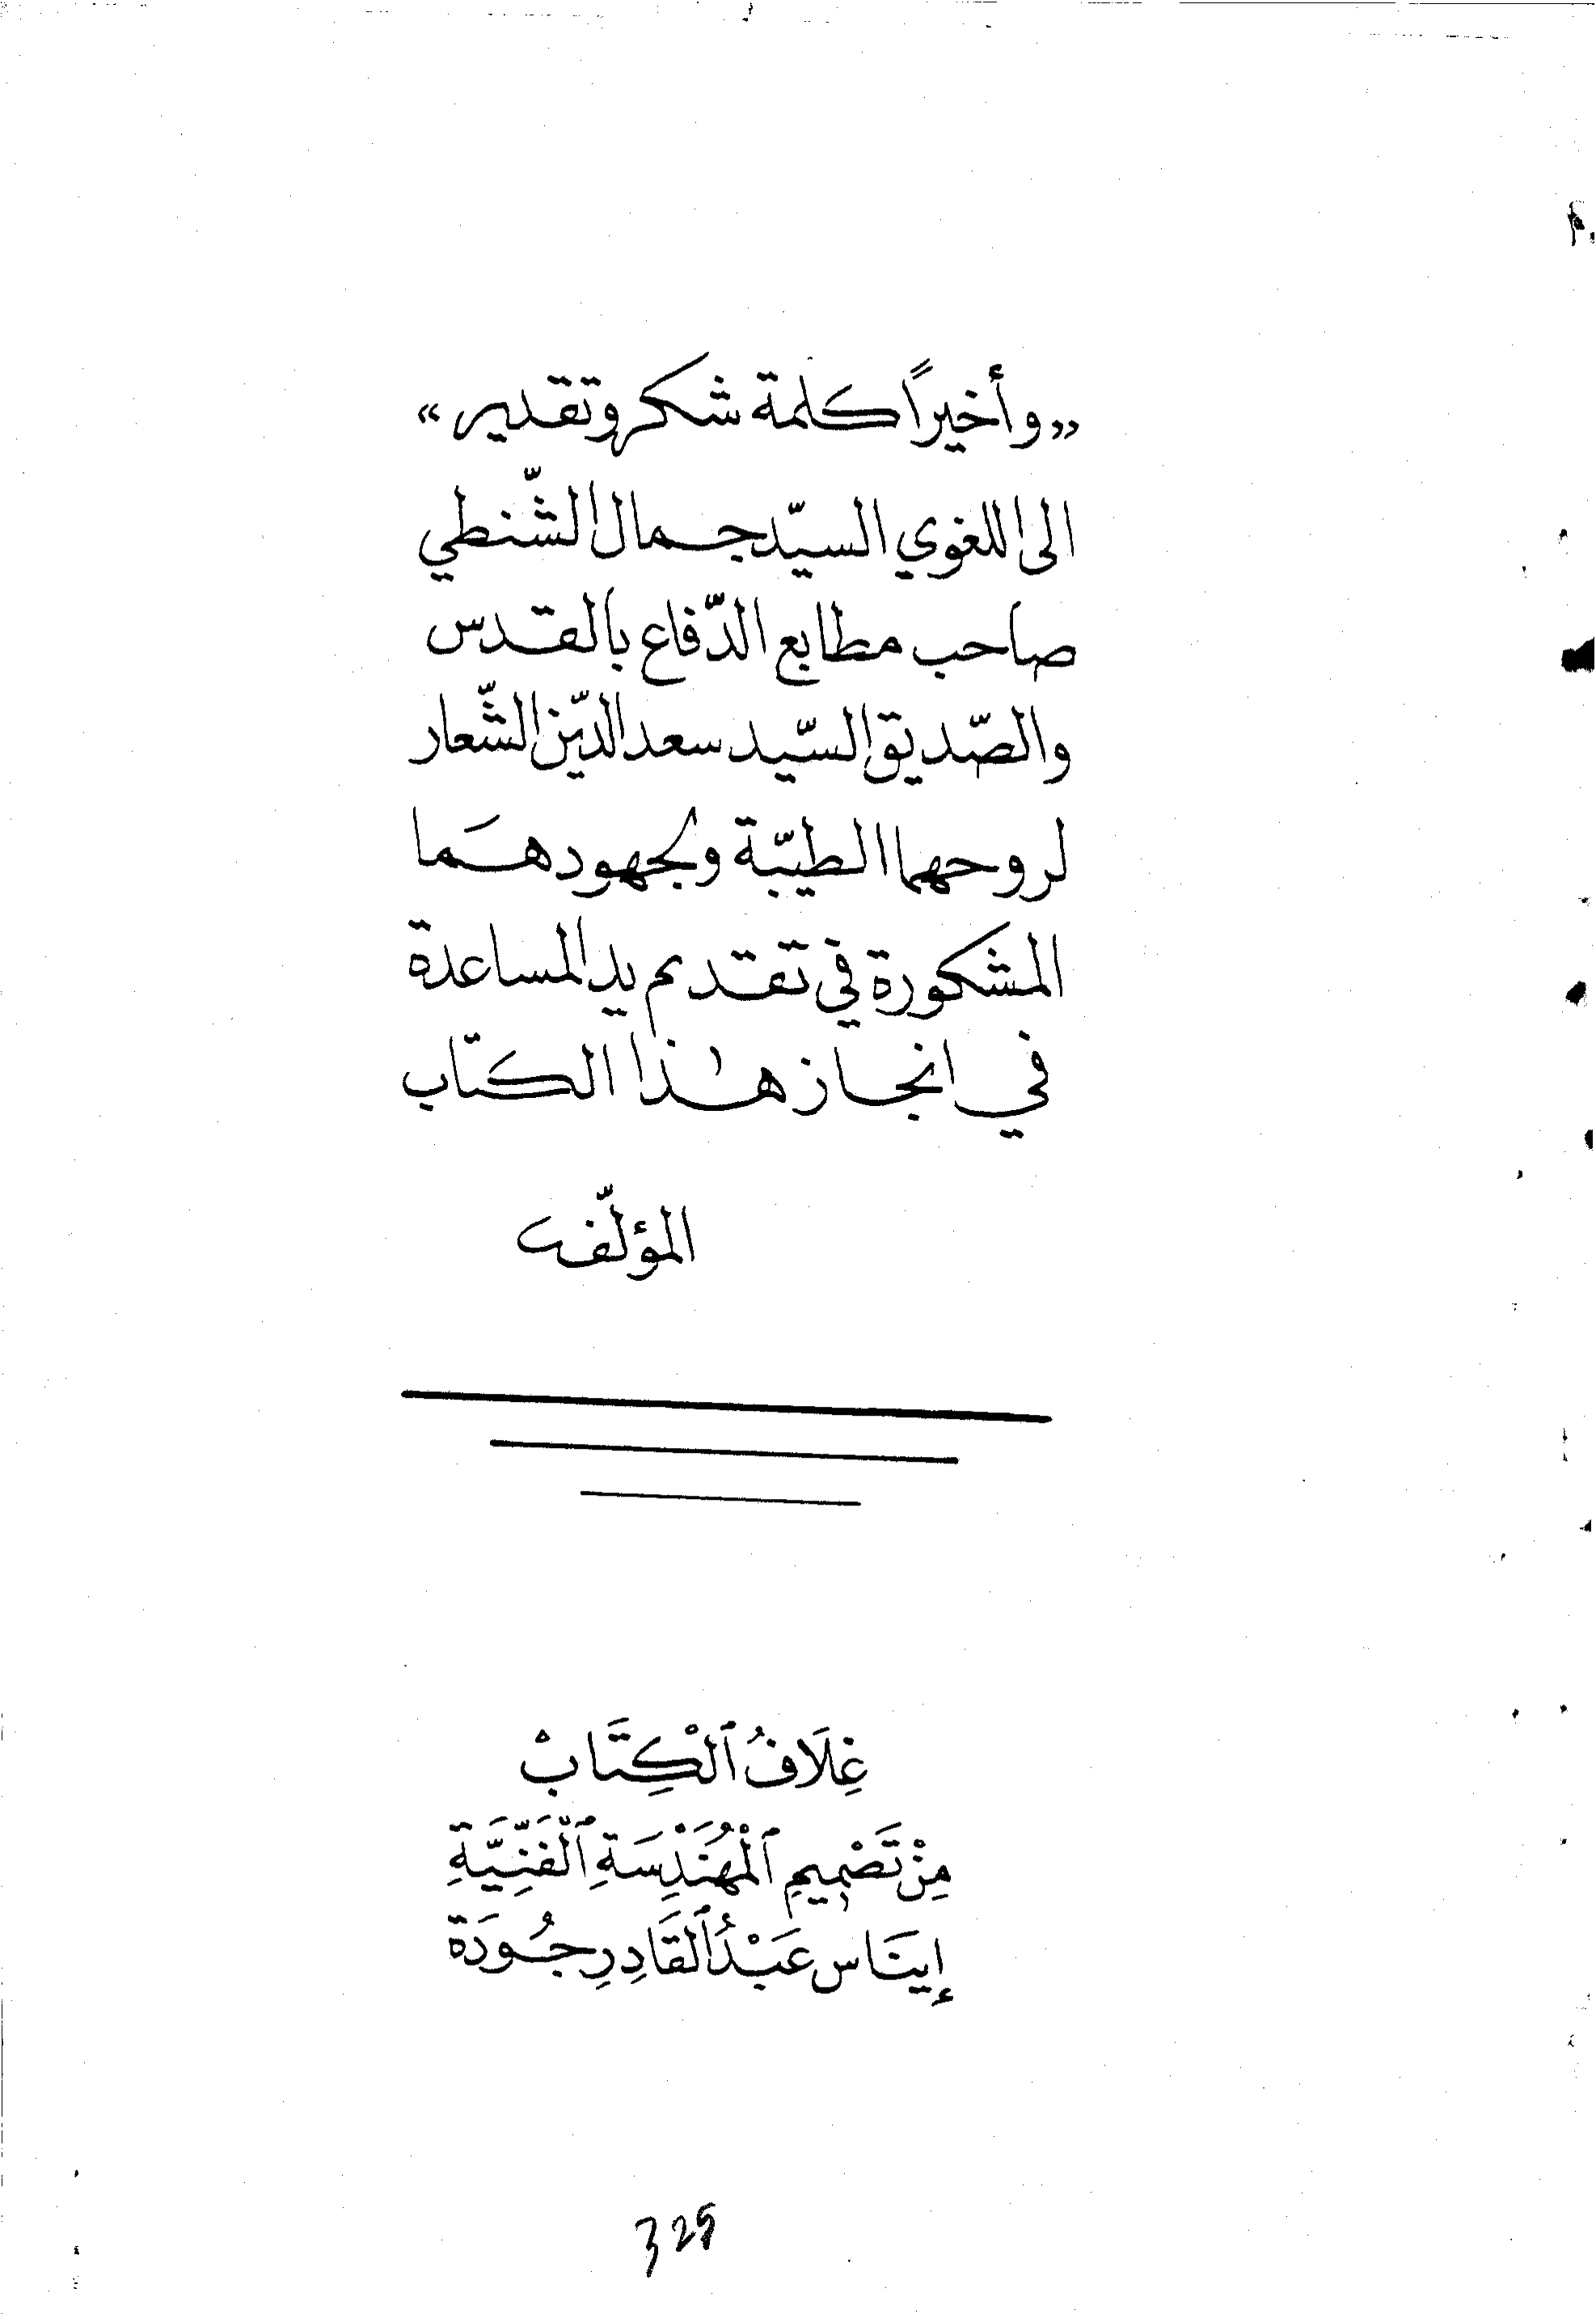 «وأخيراً كلمة شكر وتقدير»
الى اللغوي السيّد جمال الشّنطي
صاحب مطابع الدّفاع بالقدس
والصّديق السّيد سعد الدّين الشّعار
لروحهما الطيّبة ولجهودهمَا
المشكورة في تقديم يد المساعدة
في انجاز هٰذا الكتاب
المؤلّف
غِلَافُ ٱلْكِتَابْ
مِنْ تَصْمِيمِ ٱلْمُهَنْدِسَةِ ٱلْفَنِّيَّةِ
إينَاس عَبْدُ ٱلقَادِرِ جُودَة
329